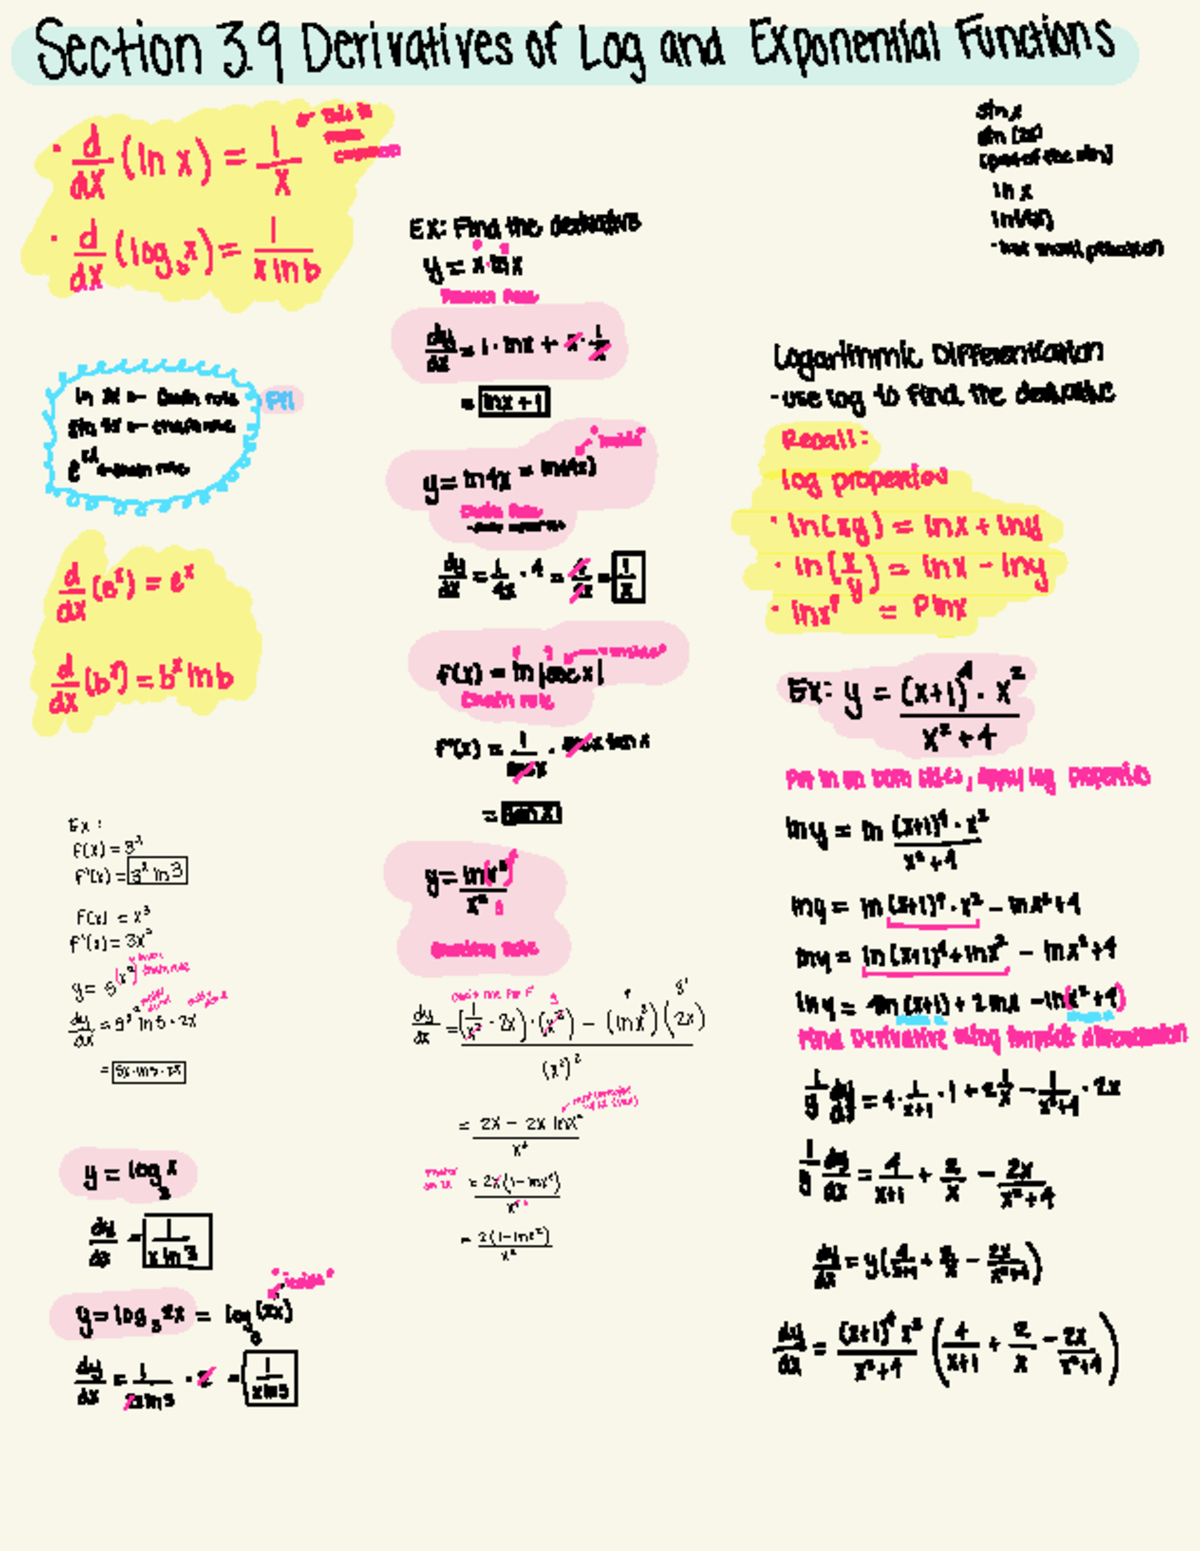 Section 3.9 Derivatives of Log and Exponential Functions
· d/dx (ln x) = 1/x
← This is more common
· d/dx (log_b x) = 1/(x ln b)
ln 2x ← Chain rule
sin 2x ← chain rule
← chain rule
d/dx (e^x) = e^x
d/dx (b^x) = b^x ln b
Ex:
f(x) = 3^x
f'(x) = 3^x ln 3
f(x) = x^3
f'(x) = 3x^2
y = 5^(x^2)
chain rule
dy/dx = 5^(x^2) ln 5 · 2x
y = log_3 x
dy/dx = 1/(x ln 3)
"inside"
y = log_3 2x = log_3 (2x)
dy/dx = 1/(2x ln 3) · 2 = 1/(x ln 3)
Ex: Find the derivative
y = x · ln x
Product Rule
dy/dx = 1 · ln x + x · 1/x
= ln x + 1
"inside"
y = ln 4x = ln(4x)
Chain Rule
dy/dx = 1/4x · 4 = 4/4x = 1/x
"inside"
f(x) = ln |sec x|
Chain rule
f'(x) = 1/sec x · sec x tan x
= tan x
y = ln(x^2)/x^2
Quotient Rule
chain rule for f'
dy/dx = ((1/x^2 · 2x) · (x^2) − (ln x^2)(2x))/(x^2)^2
= (2x − 2x ln x^2)/x^4
= 2x(1 − ln x^2)/x^4
= 2(1 − ln x^2)/x^3
sin x
sin (2x)
ln x
ln(4x)
Logarithmic Differentiation
- use log to find the derivative
Recall:
log properties
· ln(xy) = ln x + ln y
· ln(x/y) = ln x − ln y
· ln x^p = P ln x
Ex: y = (x+1)^4 · x^2/(x^2+4)
Put ln on both sides, apply log properties
ln y = ln (x+1)^4 · x^2/(x^2+4)
ln y = ln (x+1)^4 · x^2 − ln x^2+4
ln y = ln (x+1)^4 + ln x^2 − ln x^2+4
ln y = 4 ln (x+1) + 2 ln x − ln(x^2+4)
Find Derivative using implicit differentiation
1/y dy/dx = 4 · 1/(x+1) · 1 + 2 1/x − 1/(x^2+4) · 2x
1/y dy/dx = 4/(x+1) + 2/x − 2x/(x^2+4)
dy/dx = y(4/(x+1) + 2/x − 2x/(x^2+4))
dy/dx = (x+1)^4 x^2/(x^2+4) (4/(x+1) + 2/x − 2x/(x^2+4))